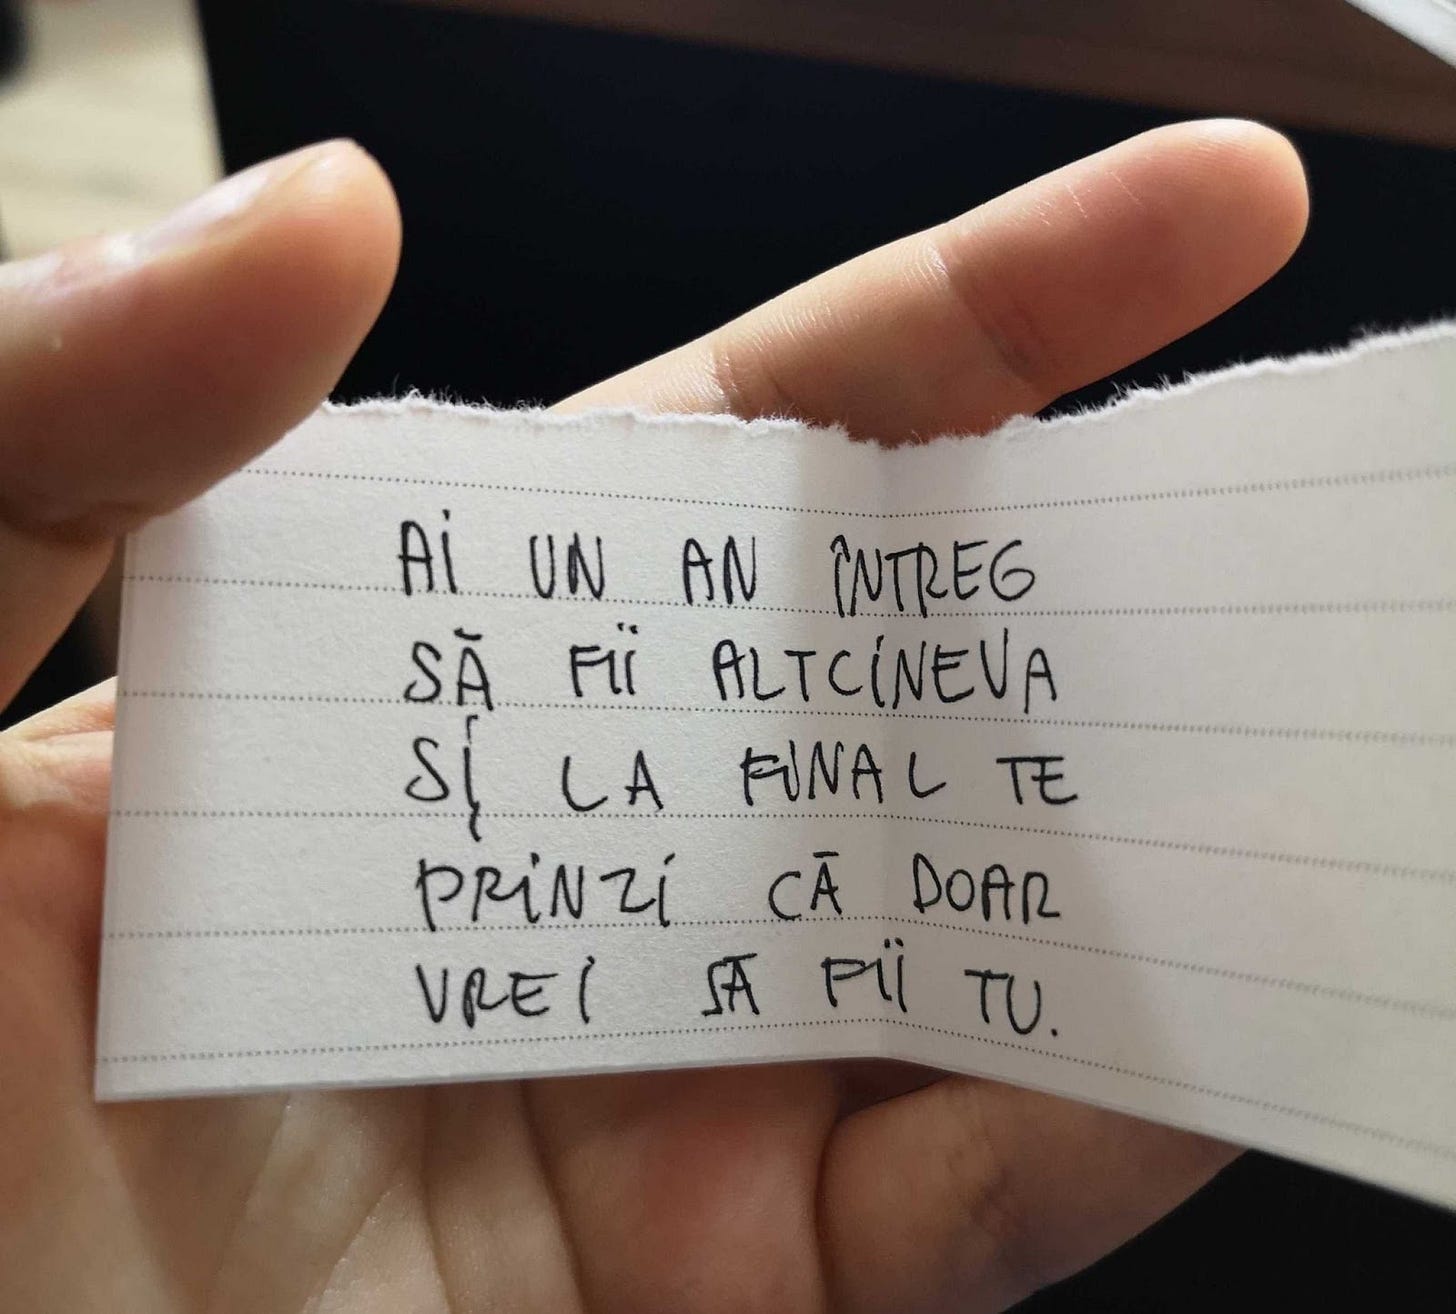 AI UN AN ÎNTREG
SĂ FII ALTCINEVA
ȘI LA FINAL TE
PRINZI CĂ DOAR
VREI SĂ FII TU.